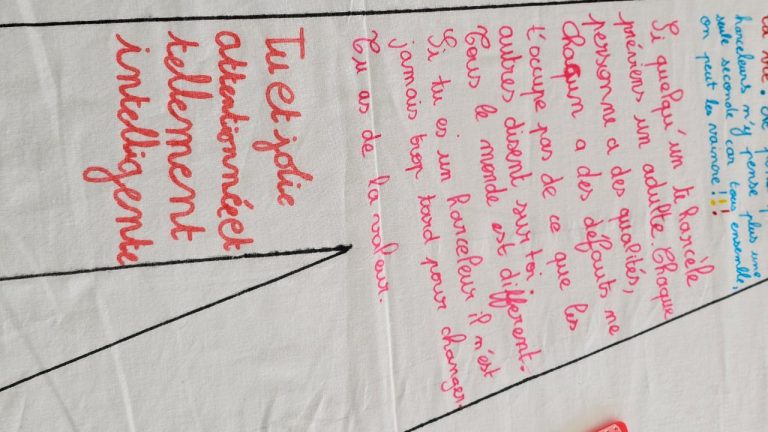 la vie.
harceleurs n'y pense plus une
seule seconde car tous ensemble,
on peut les vaincre !!!
Si quelqu'un te harcèle
préviens un adulte. Chaque
personne a des qualités,
Chaqun a des défauts ne
t'occupe pas de ce que les
autres disent sur toi,
Tous le monde est différent.
Si tu es un harceleur il n'est
jamais trop tard pour changer.
Tu as de la valeur.
Tu et jolie
attentionnée et
tellement
intelligente